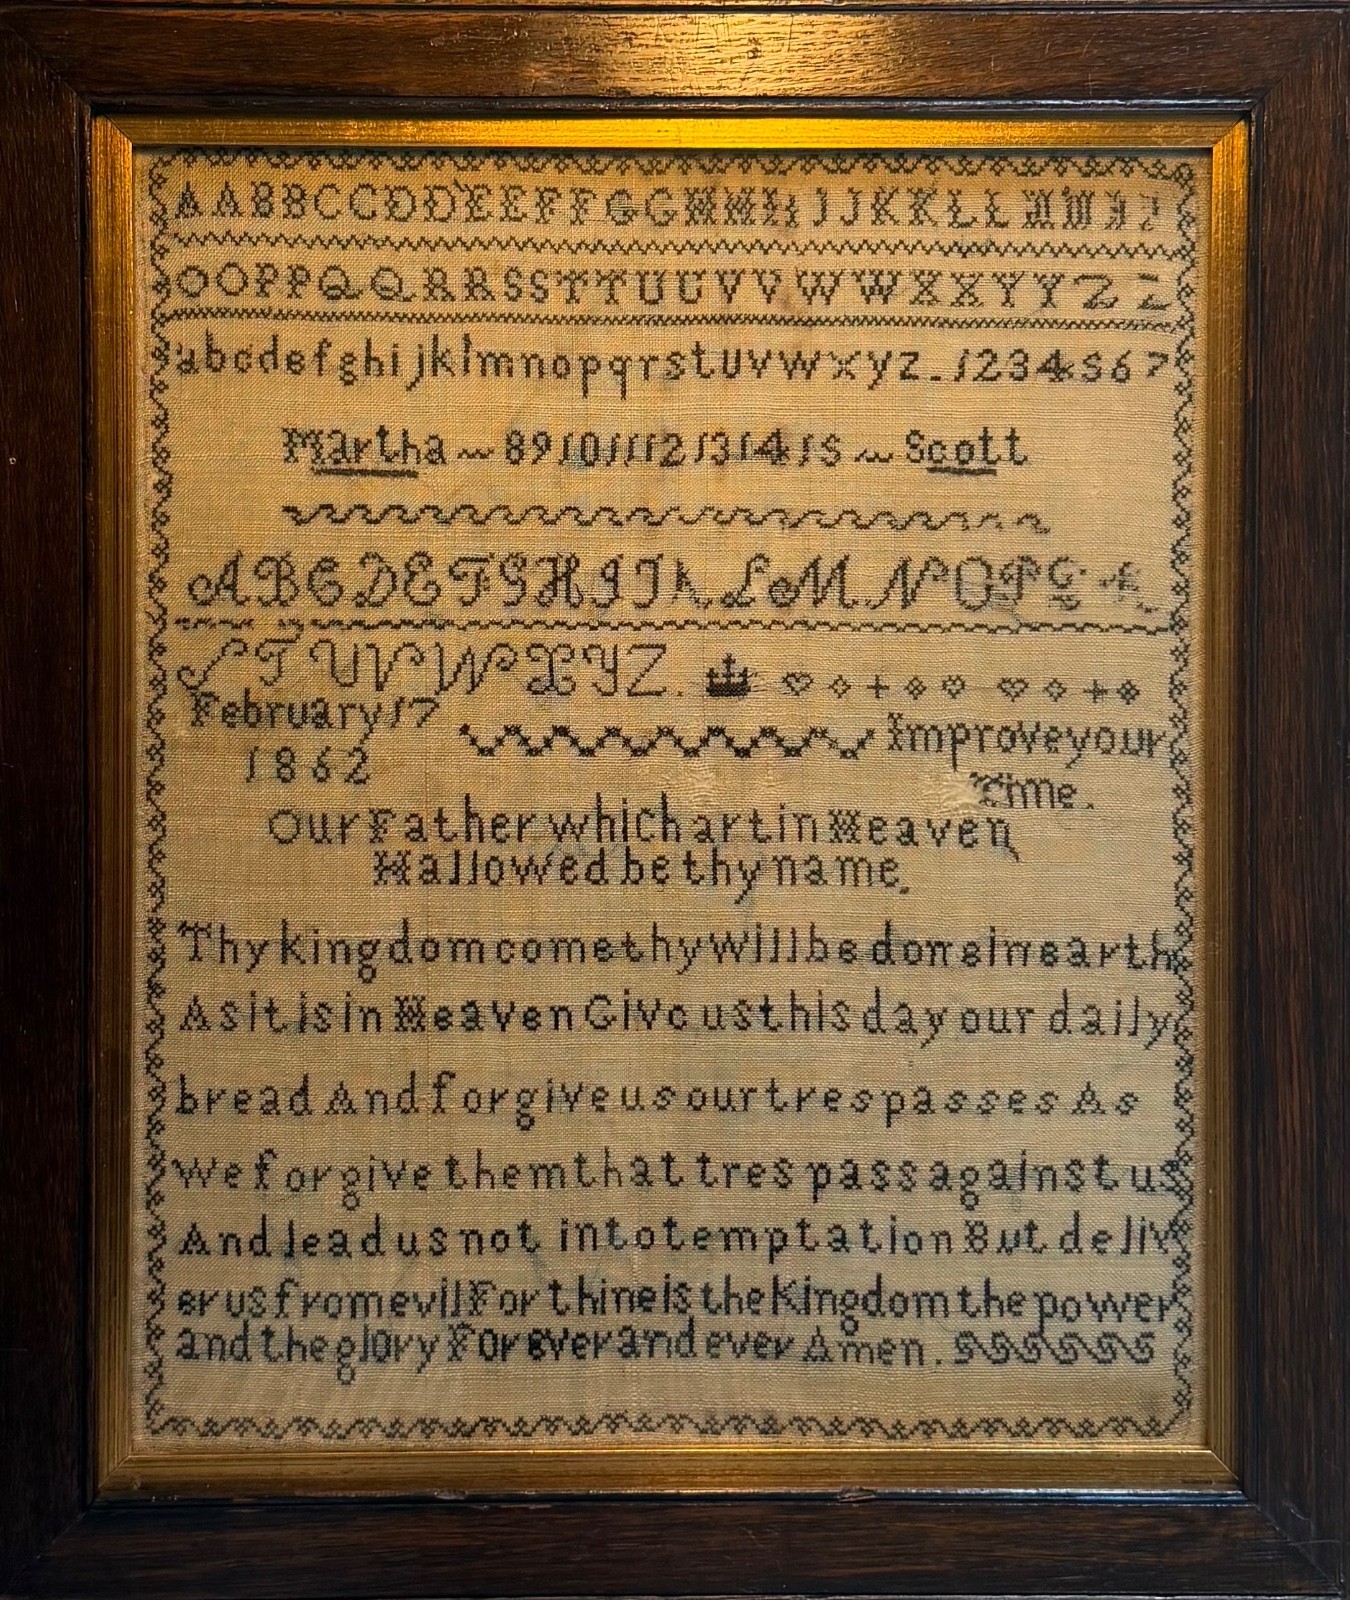 AABBCCDDEEFFGGHHIIJJKKLLMMN
OOPPQQRRSSTTUUVVWWXXYYZZ
abcdefghijklmnopqrstuvwxyz. 1234567
Martha 89101112131415 Scott
ABCDEFGHIJKLMNOPQR
STUVWXYZ.
February 17
1862
Improve your
Time.
Our Father which art in Heaven
Hallowed be thy name.
Thy kingdom come thy will be done in earth
As it is in Heaven Give us this day our daily
bread And forgive us our trespasses As
we forgive them that trespass against us
And lead us not into temptation But deliv
er us from evil For thine is the Kingdom the power
and the glory For ever and ever Amen.